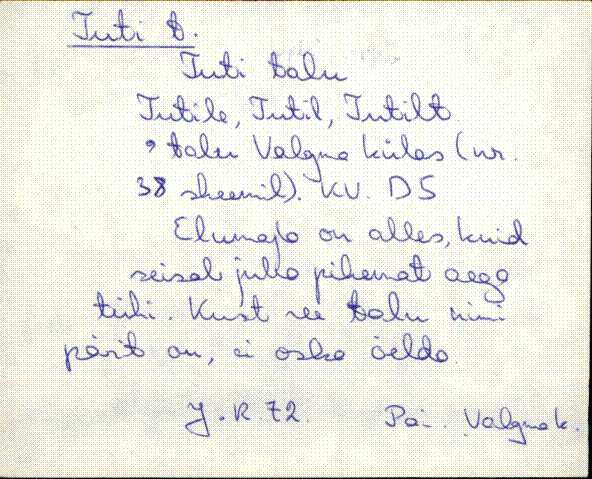 Tuti t.
Tuti talu
Tutile, Tutil, Tutilt
, talu Valgma külas (nr.
38 skeemil). KV. D5
Elumaja on alles, kuid
seisab juba pikemat aega
tühi. Kust see talu nimi
pärit on, ei oska öelda.
J. R. 72. Pai. Valgma k.